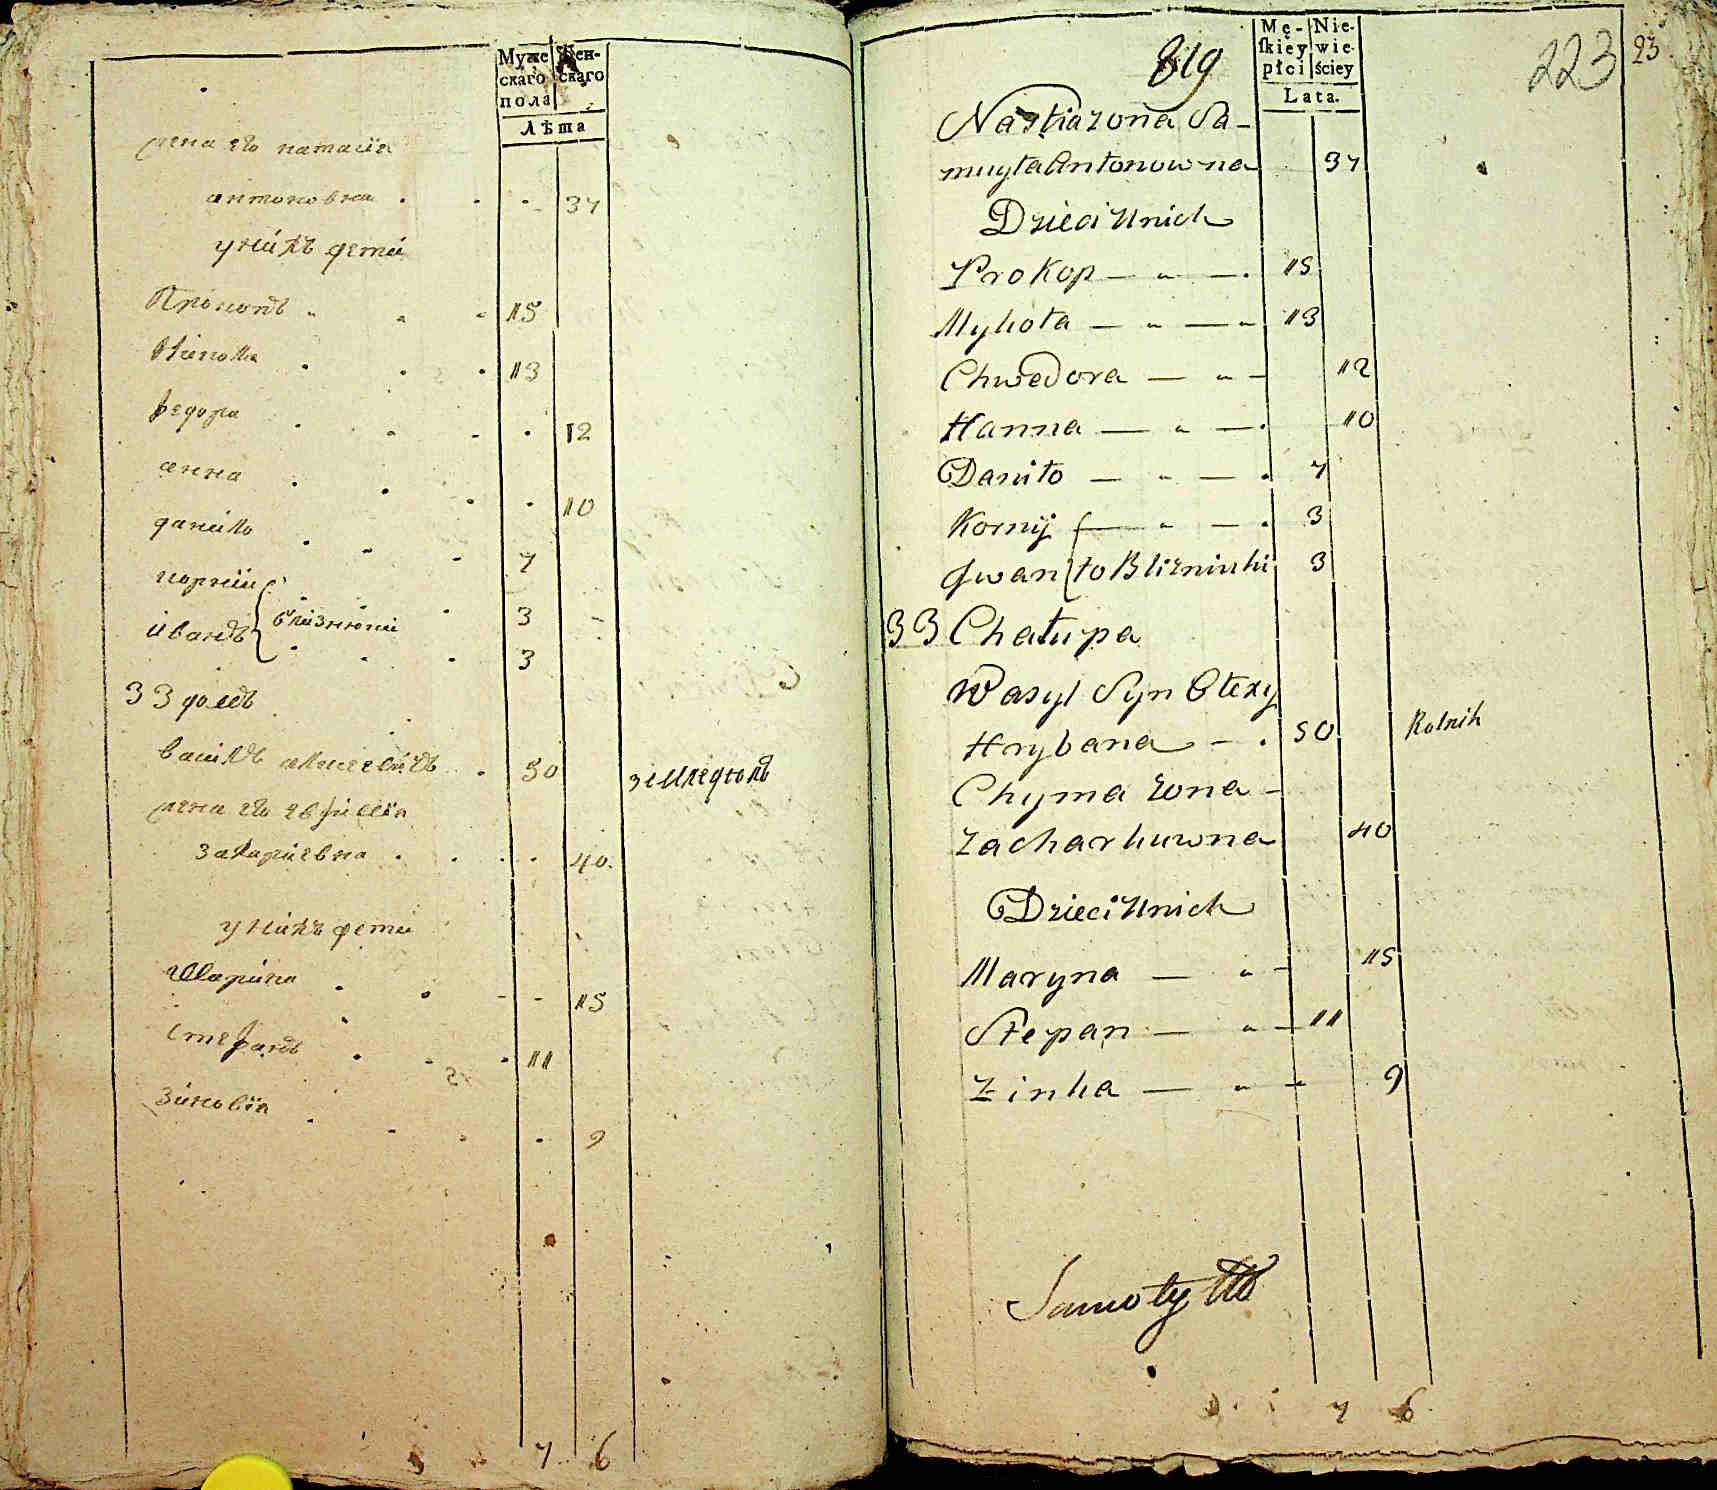 Муже Жен-
скаго скаго
пола
Лѣта
жена его наталія
антоновна 37
у нихъ дети
Прокопъ 15
Никола 13
Федора 12
анна 10
данило 7
корнiи 3
близнюки
иванъ 3
33 домъ
василъ алексеевичъ 50 землед
жена его евфимія
захариевна 40
у нихъ дети
Марина 15
Стефанъ 11
Зиновія 9
7 6
819
Mę- Nie-
skiey wie-
płci ściey
Lata.
223 23
Nastia zona Sa-
muyła Antonowna 37
Dzieci Unich
Prokop 15
Mykoła 13
Chwedora 12
Hanna 10
Daniło 7
Kornij 3
Iwan to Blizniuki 3
33 Chałupa
Wasyl Syn Ołexy
Hrybana 50 Rolnik
Chyma zona
Zacharkuwna 40
Dzieci Unich
Maryna 15
Stepan 11
Zinka 9
7 6